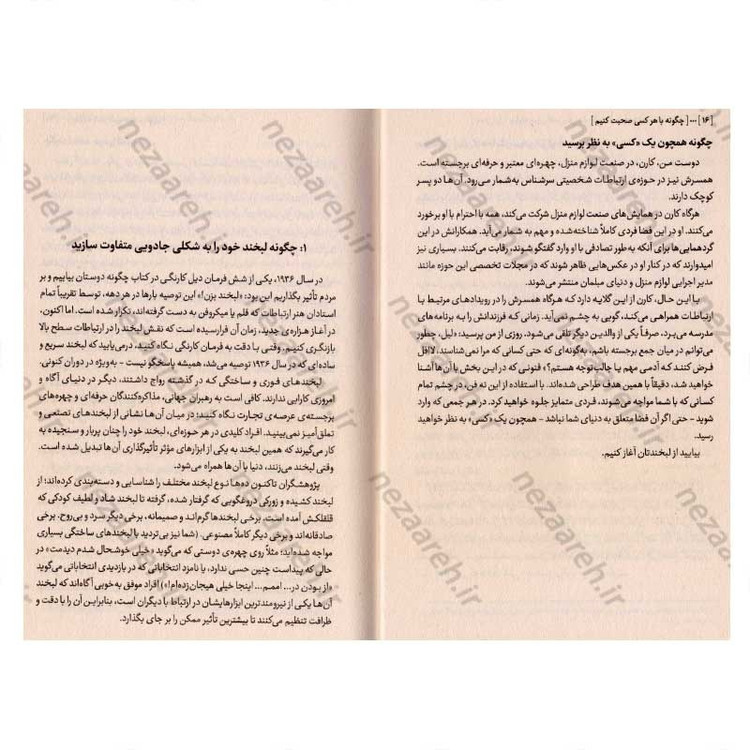 [ ۱۶ ] ... [ چگونه با هر کسی صحبت کنیم ]
چگونه همچون یک «کسی» به نظر برسید
دوست من، کارن، در صنعت لوازم منزل، چهره‌ای معتبر و حرفه‌ای برجسته است.
همسرش نیز در حوزه‌ی ارتباطات شخصیتی سرشناس به‌شمار می‌رود. آن‌ها دو پسر
کوچک دارند.
هرگاه کارن در همایش‌های صنعت لوازم منزل شرکت می‌کند، همه با احترام با او برخورد
می‌کنند. او در این فضا فردی کاملاً شناخته‌شده و مهم به شمار می‌آید. همکارانش در این
گردهمایی‌ها برای آنکه به‌طور تصادفی با او وارد گفتگو شوند، رقابت می‌کنند. بسیاری نیز
امیدوارند که در کنار او در عکس‌هایی ظاهر شوند که در مجلات تخصصی این حوزه مانند
مدیر اجرایی لوازم منزل و دنیای مبلمان منتشر می‌شوند.
با این حال، کارن از این گلایه دارد که هرگاه همسرش را در رویدادهای مرتبط با
ارتباطات همراهی می‌کند، گویی به چشم نمی‌آید. زمانی که فرزندانش را به برنامه‌های
مدرسه می‌برد، صرفاً یکی از والدین دیگر تلقی می‌شود. روزی از من پرسید: «لیل، چطور
می‌توانم در میان جمع برجسته باشم، به‌گونه‌ای که حتی کسانی که مرا نمی‌شناسند، لااقل
فرض کنند که آدمی مهم یا جالب‌توجه هستم؟» فنونی که در این بخش با آن‌ها آشنا
خواهید شد، دقیقاً با همین هدف طراحی شده‌اند. با استفاده از این نه فن، در چشم تمام
کسانی که با شما مواجه می‌شوند، فردی متمایز جلوه خواهید کرد. در هر جمعی که وارد
شوید - حتی اگر آن فضا متعلق به دنیای شما نباشد - همچون یک «کسی» به نظر خواهید
رسید.
بیایید از لبخندتان آغاز کنیم.
۱: چگونه لبخند خود را به شکلی جادویی متفاوت سازید
در سال ۱۹۳۶، یکی از شش فرمان دیل کارنگی در کتاب چگونه دوستان بیابیم و بر
مردم تأثیر بگذاریم این بود: «لبخند بزن!» این توصیه بارها در هر دهه، توسط تقریباً تمام
استادان هنر ارتباطات که قلم یا میکروفن به دست گرفته‌اند، تکرار شده است. اما اکنون،
در آغاز هزاره‌ی جدید، زمان آن فرارسیده است که نقش لبخند را در ارتباطات سطح بالا
بازنگری کنیم. وقتی با دقت به فرمان کارنگی نگاه کنید، درمی‌یابید که لبخند سریع و
ساده‌ای که در سال ۱۹۳۶ توصیه می‌شد، همیشه پاسخگو نیست - به‌ویژه در دوران کنونی.
لبخندهای فوری و ساختگی که در گذشته رواج داشتند، دیگر در دنیای آگاه و
امروزی کارایی ندارند. کافی است به رهبران جهانی، مذاکره‌کنندگان حرفه‌ای و چهره‌های
برجسته‌ی عرصه‌ی تجارت نگاه کنید؛ در میان آن‌ها نشانی از لبخندهای تصنعی و
تملق‌آمیز نمی‌بینید. افراد کلیدی در هر حوزه‌ای، لبخند خود را چنان پربار و سنجیده به
کار می‌گیرند که همین لبخند به یکی از ابزارهای مؤثر تأثیرگذاری آن‌ها تبدیل شده است.
وقتی لبخند می‌زنند، دنیا با آن‌ها همراه می‌شود.
پژوهشگران تاکنون ده‌ها نوع لبخند مختلف را شناسایی و دسته‌بندی کرده‌اند؛ از
لبخند کشیده و زورکی دروغگویی که گرفتار شده، گرفته تا لبخند شاد و لطیف کودکی که
قلقلکش آمده است. برخی لبخندها گرم‌اند و صمیمانه، برخی دیگر سرد و بی‌روح. برخی
صادقانه‌اند و برخی دیگر کاملاً مصنوعی. (شما نیز بی‌تردید با لبخندهای ساختگی بسیاری
مواجه شده‌اید؛ مثلاً روی چهره‌ی دوستی که می‌گوید «خیلی خوشحال شدم دیدمت» در
حالی که پیداست چنین حسی ندارد، یا نامزد انتخاباتی که در بازدیدی انتخاباتی می‌گوید
«از بودن در... اممم... اینجا خیلی هیجان‌زده‌ام!») افراد موفق به‌خوبی آگاه‌اند که لبخند
آن‌ها یکی از نیرومندترین ابزارهایشان در ارتباط با دیگران است، بنابراین آن را با دقت و
ظرافت تنظیم می‌کنند تا بیشترین تأثیر ممکن را بر جای بگذارد.
nezaareh.ir